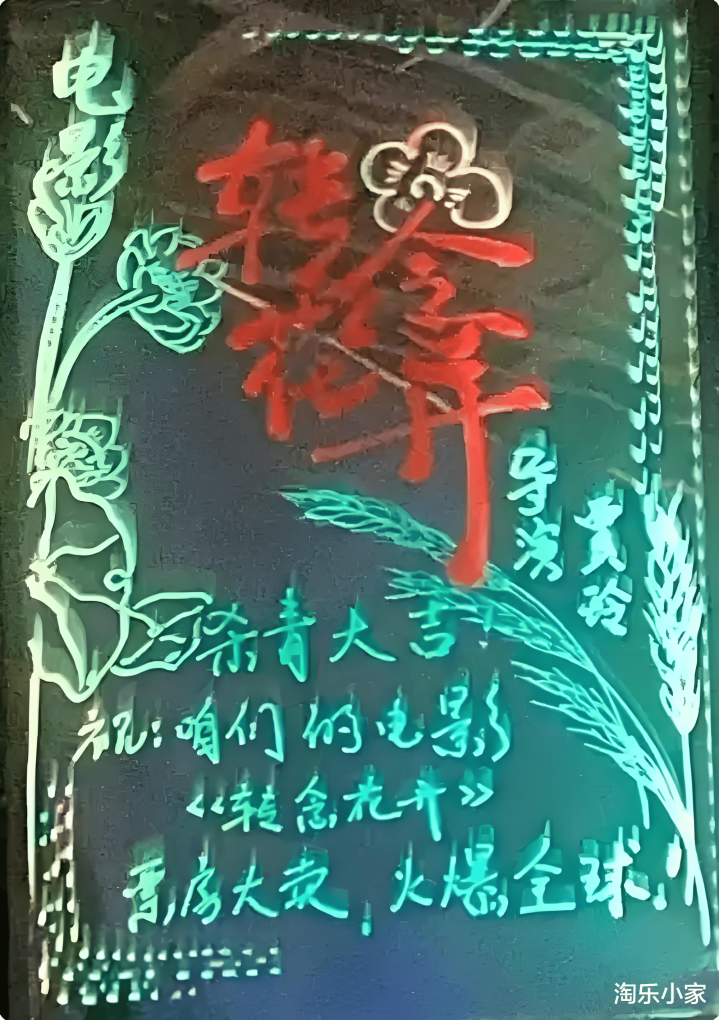 电影
转念
花开
导演
贾玲
杀青大吉
祝:咱们的电影
《转念花开》
票房大卖,火爆全球!
淘乐小家